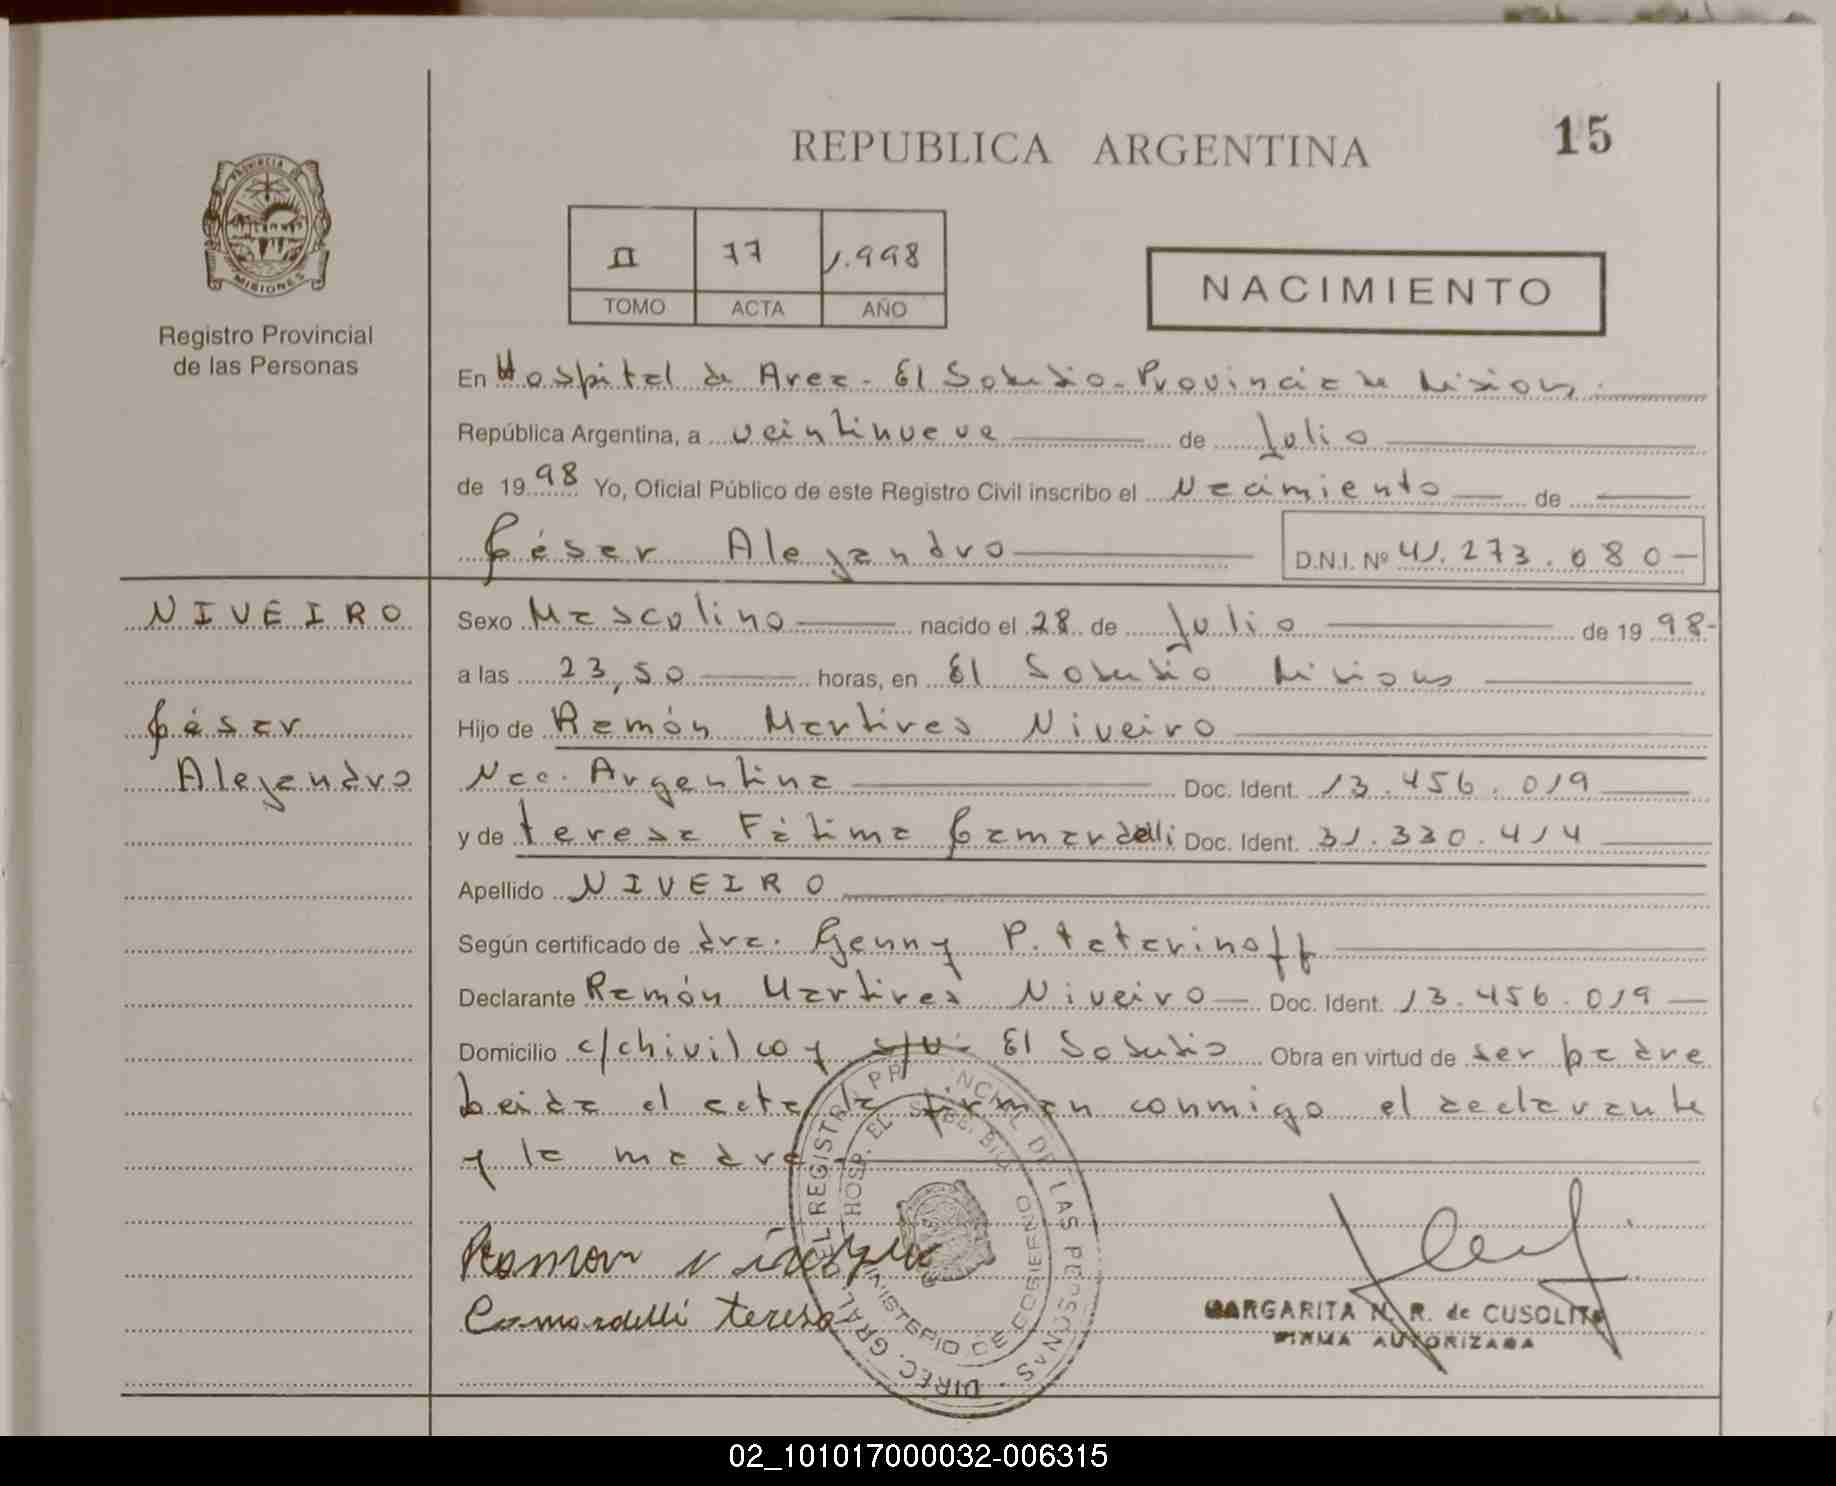 REPUBLICA ARGENTINA
15
PROVINCIA DE
MISIONES
Registro Provincial
de las Personas
II 77 1.998
TOMO ACTA AÑO
NACIMIENTO
En Hospital de Area - El Soberbio - Provincia de Misiones.
República Argentina, a veintinueve de Julio
de 1998 Yo, Oficial Público de este Registro Civil inscribo el Nacimiento de
César Alejandro D.N.I. Nº 41.273.080
NIVEIRO
César
Alejandro
Sexo Masculino nacido el 28 de Julio de 1998
a las 23,50 horas, en El Soberbio Misiones
Hijo de Ramón Martires Niveiro
Nac. Argentina Doc. Ident. 13.456.019
y de teresa Fátima Camardelli Doc. Ident. 31.330.414
Apellido NIVEIRO
Según certificado de dra. Genny P. tatarinoff
Declarante Ramón Martires Niveiro Doc. Ident. 13.456.019
Domicilio c/chivilcoy s/n: El Soberbio Obra en virtud de ser padre
Leida el acta la firman conmigo el declarante
y la madre
Ramon
Camardelli teresa
DIREC. GRAL. DEL REGISTRO PROVINCIAL DE LAS PERSONAS
HOSP. EL SOBERBIO
MINISTERIO DE GOBIERNO
MARGARITA N. R. de CUSOLITO
FIRMA AUTORIZADA
02_101017000032-006315